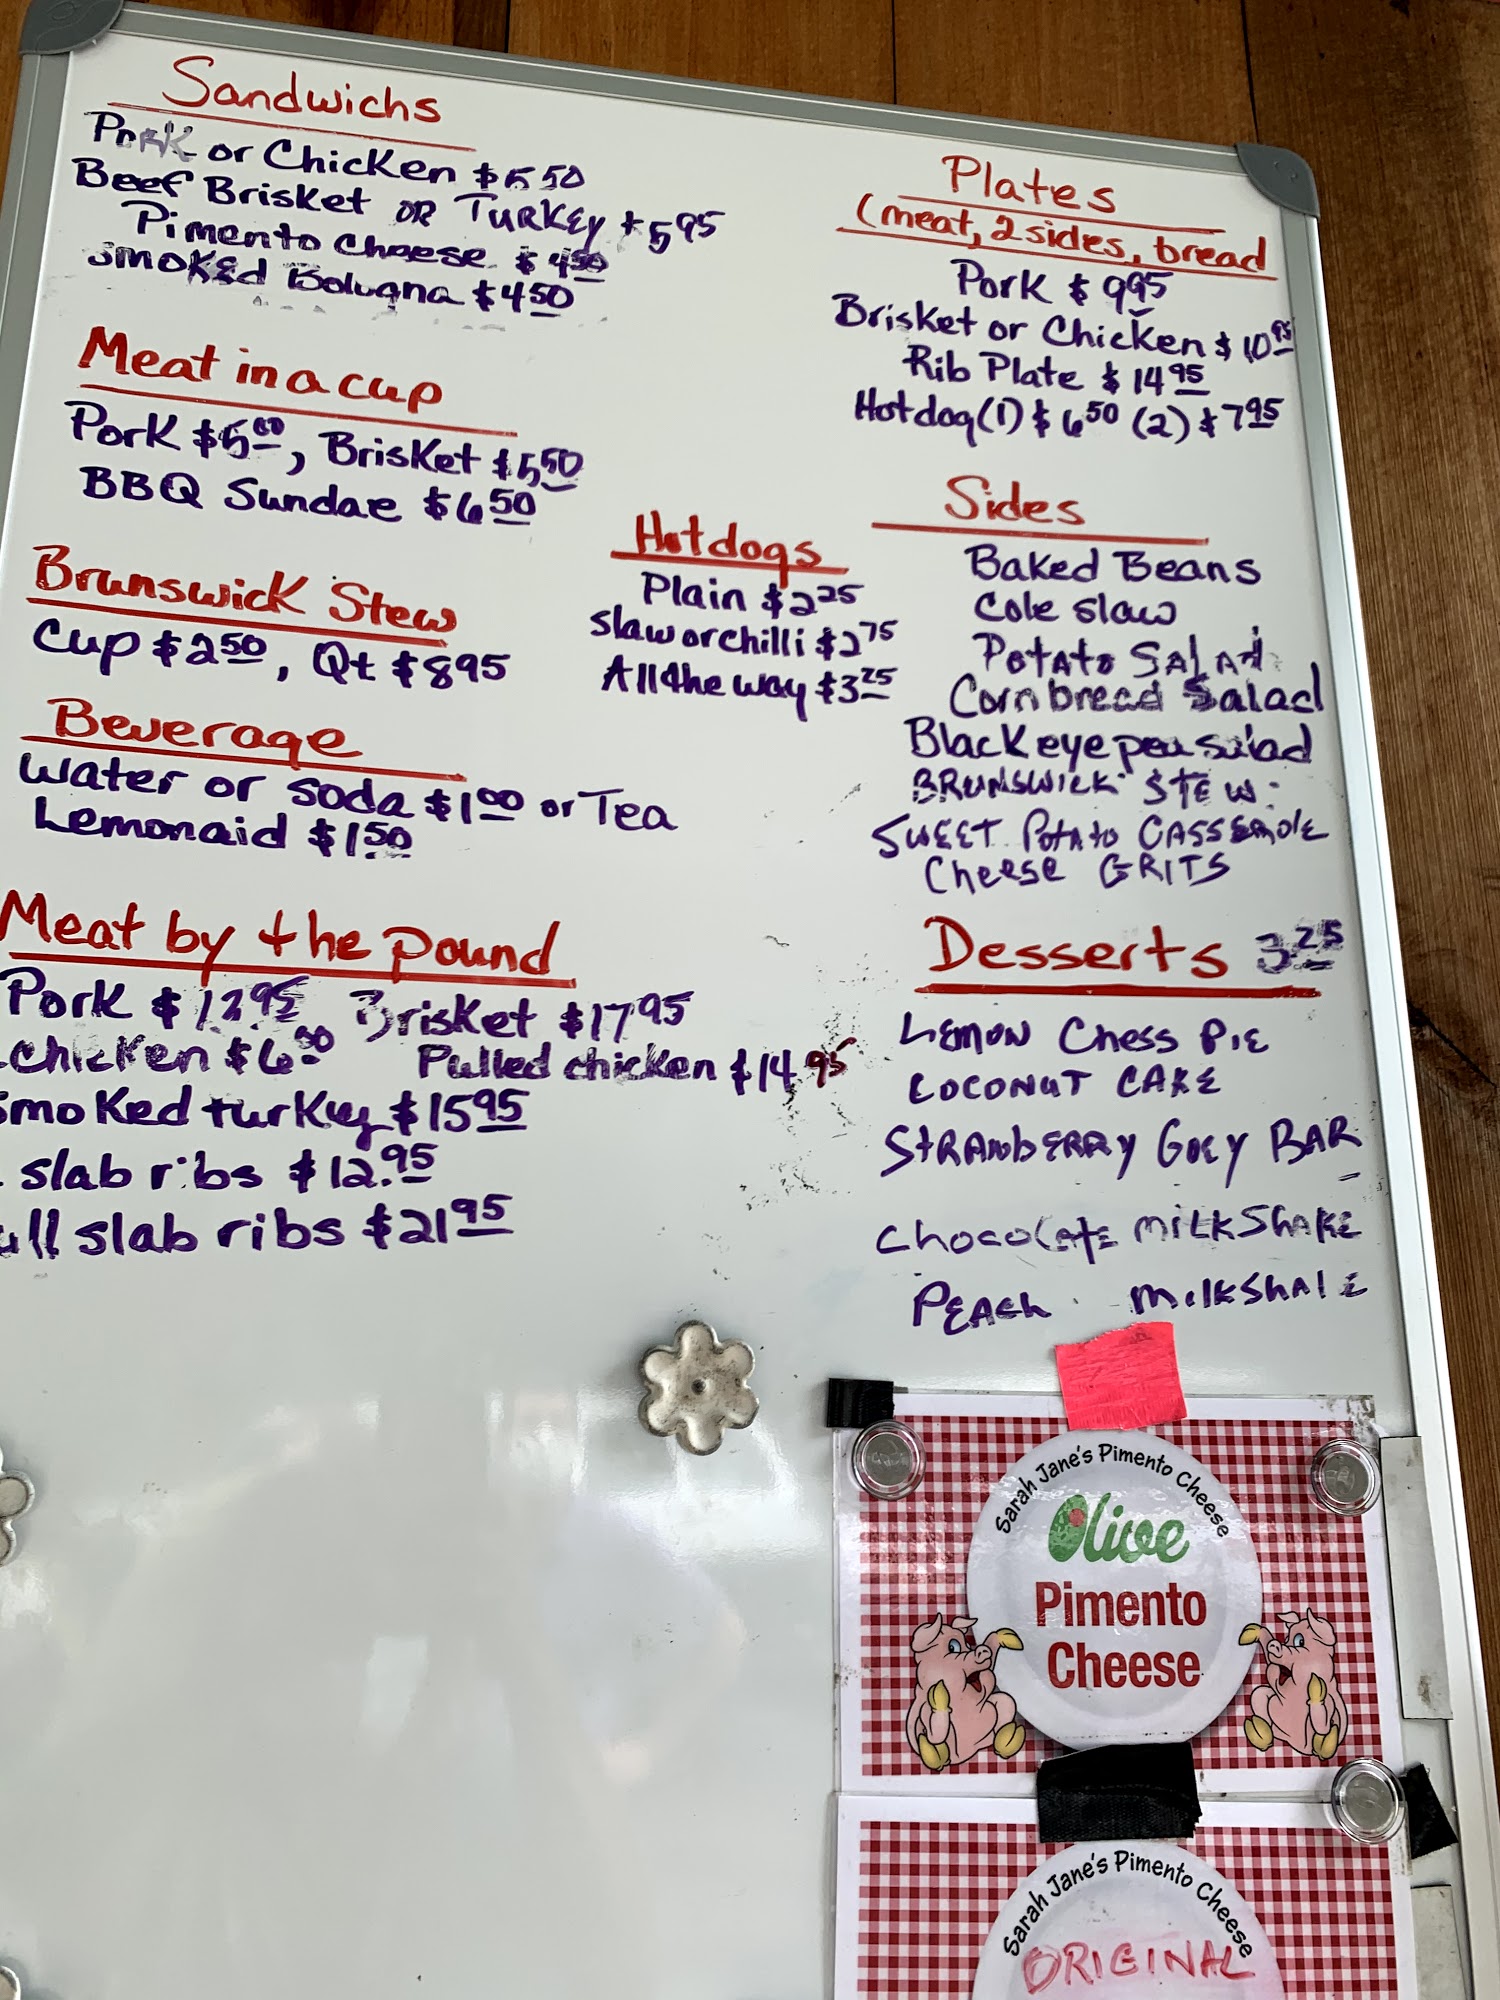 Sandwichs
Pork or Chicken $5 50
Beef Brisket OR TURKEY $5 95
Pimento Cheese $4 50
Smoked Bologna $4 50
Meat in a cup
Pork $5 00, Brisket $5 50
BBQ Sundae $6 50
Brunswick Stew
Cup $2 50, Qt $8 95
Beverage
Water or soda $1 00 or Tea
Lemonaid $1 50
Meat by the pound
Pork $ 95 Brisket $17 95
chicken $6 Pulled chicken $14 95
Smoked turkey $15 95
slab ribs $12.95
ull slab ribs $21 95
Hotdogs
Plain $2 25
Slaw or chilli $2 75
All the way $3 25
Plates
(meat, 2 sides, bread
Pork $9 95
Brisket or Chicken $10 95
Rib Plate $14 95
Hotdog (1) $6 50 (2) $7 95
Sides
Baked Beans
Cole slaw
Potato SALAd
Cornbread Salad
Black eye pea salad
BRUNSWICK STEW
SWEET Potato CASSEROLE
Cheese GRITS
Desserts 3 25
LEMON Chess PIE
COCONUT CAKE
StRAWbERRY GOEY BAR
Chocolate MILKSHAKE
PEACh MilkShake
Sarah Jane's Pimento Cheese
Olive
Pimento
Cheese
Sarah Jane's Pimento Cheese
ORIGINAL